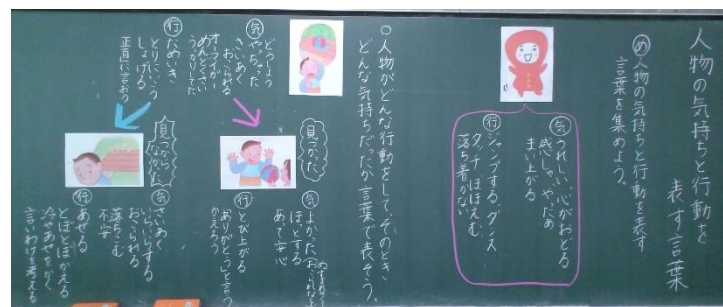 人物の気持ちと行動を
表す言葉
め 人物の気持ちと行動を表す
言葉を集めよう。
気 うれしい、心がおどる
感しゃ、やったあ
まい上がる
行 ジャンプする、ダンス
タッチ、ほほえむ
落ち着かない
○人物がどんな行動をして、そのとき、
どんな気持ちだったか言葉で表そう。
どうしよう
気 やっちゃった
さいあく
おこられる
オーマイガー
めんどくさい
うっかりしてた
行 ためいき
とりにいこう
しょげる
正直に言おう
見つかった
気 よかった
ほっとする
あって安心
行 とび上がる
ありがとうと言う
かえろう
見つからなかった
気 さいあく
いらいらする
おこられる
落ちこむ
不安
行 あせる
とぼとぼかえる
冷やあせをかく
言いわけを考える